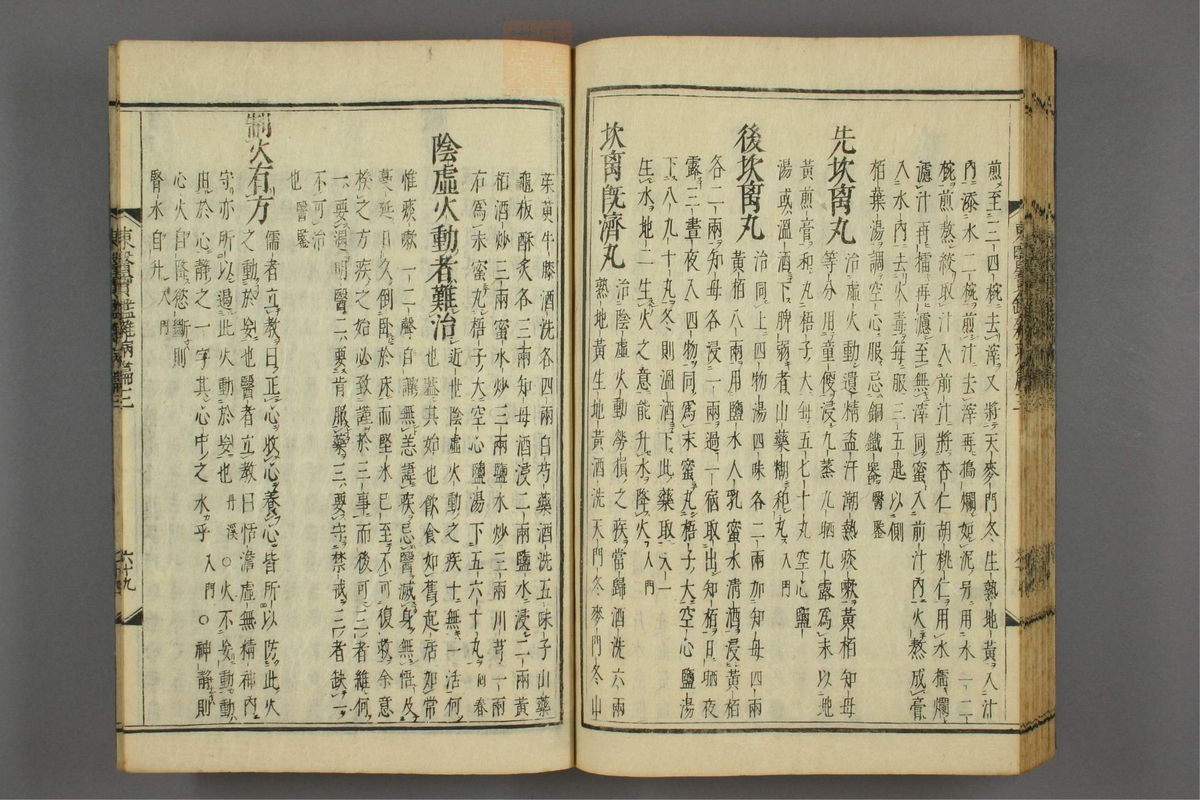 煎至三四椀去滓又將天麥門冬生熟地黃入汁
內添水二椀煎汁去滓再搗爛如泥另用水一二
椀煎熬絞取汁入前汁將杏仁胡桃仁用水擂爛
濾汁再擂再濾至無滓同蜜入前汁內火熬成膏
入水內去火毒每服三五匙以側
栢葉湯調空心服忌銅鐵器醫鑒
先坎离丸 治虛火動遺精盗汗潮熱痰嗽黃栢知母
等分用童便浸九蒸九晒九露爲末以地
黃煎膏和丸梧子大每五七十丸空心鹽
湯或溫酒下脾弱者山藥糊和丸入門
後坎离丸 治同上四物湯四味各二兩加知母四兩
黃栢八兩用鹽水人乳蜜水淸酒浸黃栢
各二兩知母各浸一兩過一宿取出知栢瓦晒夜
露三晝夜入四物同爲末蜜丸梧子大空心鹽湯
下八九十丸冬則溫酒下此藥取天一
生水地二生火之意能升水降火入門
坎离旣濟丸 治陰虛火動勞損之疾當歸酒洗六兩
熟地黃生地黃酒洗天門冬麥門冬山
茱黃牛膝酒洗各四兩白芍藥酒洗五味子山藥
龜板酥炙各三兩知母酒浸二兩鹽水浸二兩黃
栢酒炒三兩蜜水炒三兩鹽水炒三兩川芎一兩
右爲末蜜丸梧子大空心鹽湯下五六十丸回春
陰虛火動者難治 近世陰虛火動之疾十無一活何
也盖其始也飮食如舊起居如常
惟痰嗽一二聲自謂無恙諱疾忌醫滅身無悟及
蔓延日久倒卧於床而堅氷已至不可復救余意
療之方疾之始必致謹於三事而後可三者維何
一要遇明醫二要肯服藥三要守禁戒三者缺一
不可治
也醫鑒
制火有方 儒者立教曰正心收心養心皆所以防此火
之動於妄也醫者立教曰恬澹虛無精神內
守亦所以遏此火動於妄也丹溪○火不妄動動
由於心靜之一字其心中之水乎入門○神靜則
心火自降慾斷則
腎水自升入門
東醫寶鑑雜病篇三
六十九